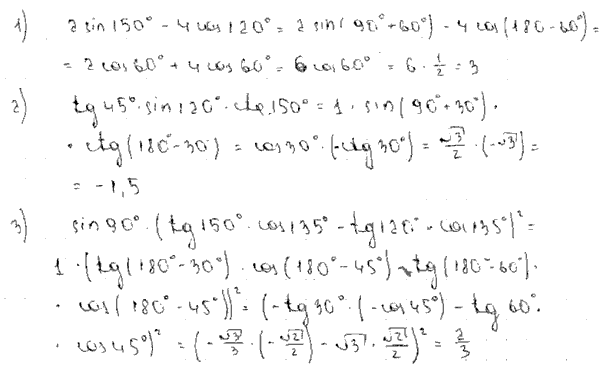 1) 2 sin150° - 4 cos120° = 2 sin(90°+60°) - 4 cos(180-60°) =
= 2 cos60° + 4 cos60° = 6 cos60° = 6 · 1/2 = 3
2) tg45° · sin120° · ctg150° = 1 · sin(90°+30°) ·
· ctg(180°-30) = cos30° · (-ctg30°) = √3/2 · (-√3) =
= -1,5
3) sin90° · (tg150° · cos135° - tg120° · cos135°)² =
1 · (tg(180°-30°) · cos(180°-45°) - tg(180°-60°) ·
· cos(180°-45°))² = (-tg30° · (-cos45°) - tg60° ·
· cos45°)² = (-√3/3 · (-√2/2) - √3 · √2/2)² = 2/3